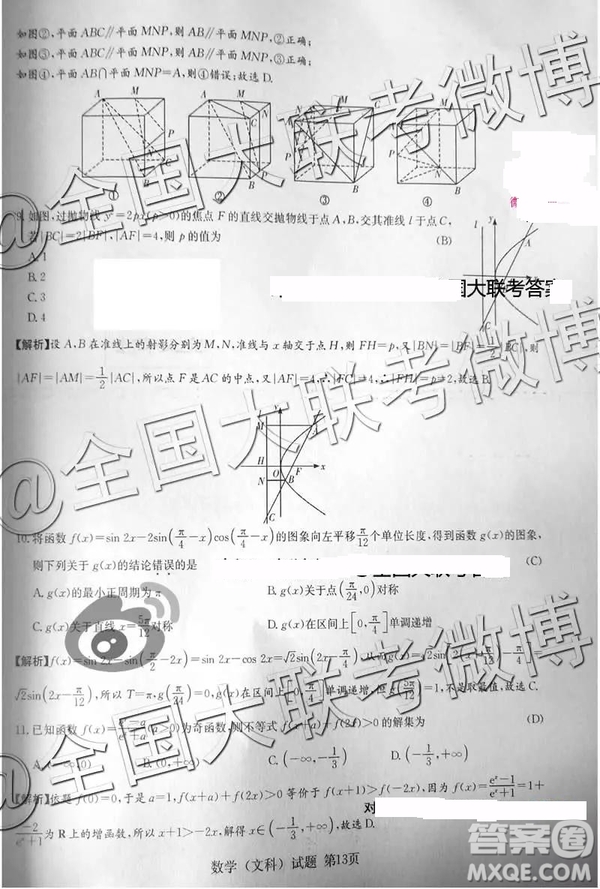 如图②,平面ABC∥平面MNP,则AB∥平面MNP,②正确;
如图③,平面ABC∥平面MNP,则AB∥平面MNP,③正确;
如图④,平面AB∩平面MNP=A,则④错误;故选D.
① ② ③ ④
9. 如图,过抛物线y²=2px(p>0)的焦点F的直线交抛物线于点A,B,交其准线l于点C,
若|BC|=2|BF|,|AF|=4,则p的值为 (B)
A. 1
B. 2
C. 3
D. 4
国大联考答案
【解析】设A,B在准线上的射影分别为M,N,准线与x轴交于点H,则FH=p,又|BN|=|BF|=1/2|BC|,则
|AF|=|AM|=1/2|AC|,所以点F是AC的中点,又|AF|=4,∴|FC|=4,∴|FH|=p=2,故选B.
10. 将函数f(x)=sin 2x-2sin(π/4-x)cos(π/4-x)的图象向左平移π/12个单位长度,得到函数g(x)的图象,
则下列关于g(x)的结论错误的是 (C)
A. g(x)的最小正周期为π B. g(x)关于点(π/24,0)对称
C. g(x)关于直线x=5π/12对称 D. g(x)在区间[0,π/4]单调递增
【解析】f(x)=sin 2x-sin(π/2-2x)=sin 2x-cos 2x=√2sin(2x-π/4),
√2sin(2x-π/12),所以T=π,g(π/24)=0,g(x)在区间[0,π/4]单调递增,
不是取最值,故选C.
11. 已知函数 为奇函数,则不等式f(x+a)+f(2x)>0的解集为 (D)
B. (-1/3,+∞) C. (-∞,-1/3) D. (-1/3,+∞)
【解析】依题f(0)=0,于是a=1,f(x+a)+f(2x)>0等价于f(x+1)>-f(2x),因为f(x)=(eˣ-1)/(eˣ+1)=1+
-2/(eˣ+1)为R上的增函数,所以x+1>-2x,解得x∈(-1/3,+∞),故选D.
数学(文科)试题 第13页
@全国大联考微博
@全国大联考微博
答案圈
MXQE.COM